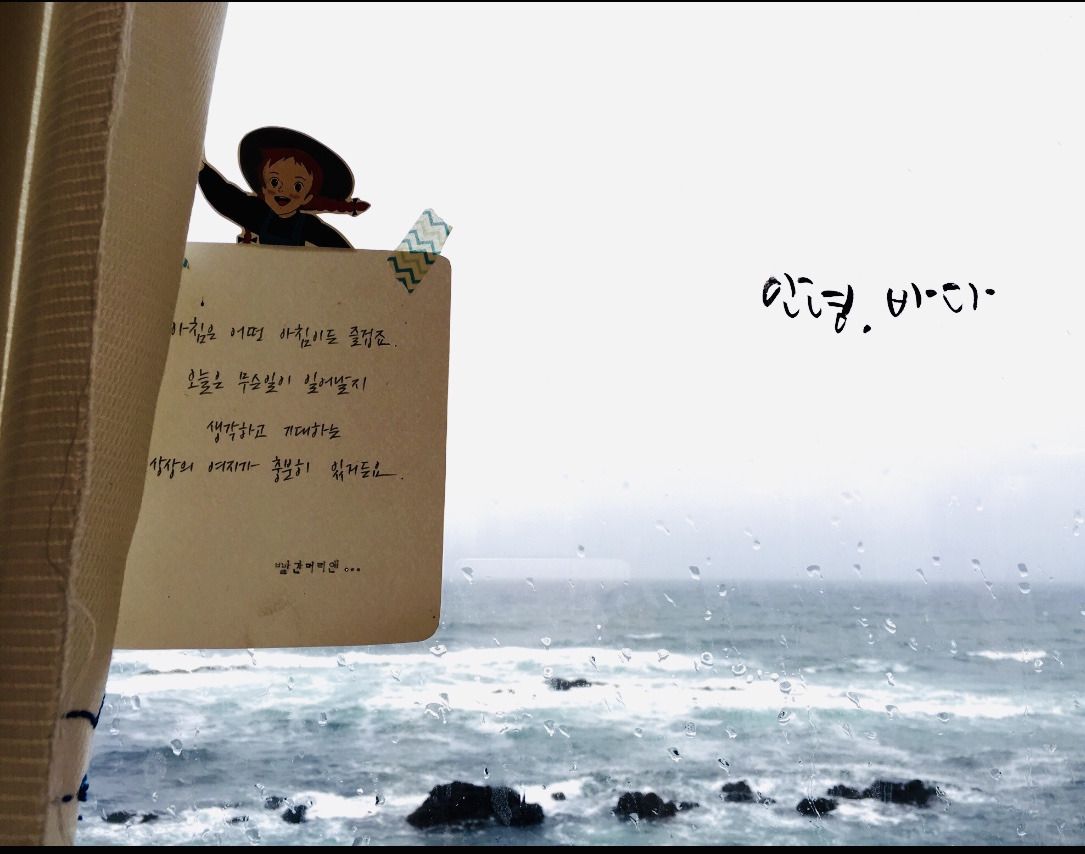 아침은 어떤 아침이든 즐겁죠.
오늘은 무슨일이 일어날지
생각하고 기대하는
상상의 여지가 충분히 있거든요.
빨간머리앤...
안녕, 바다